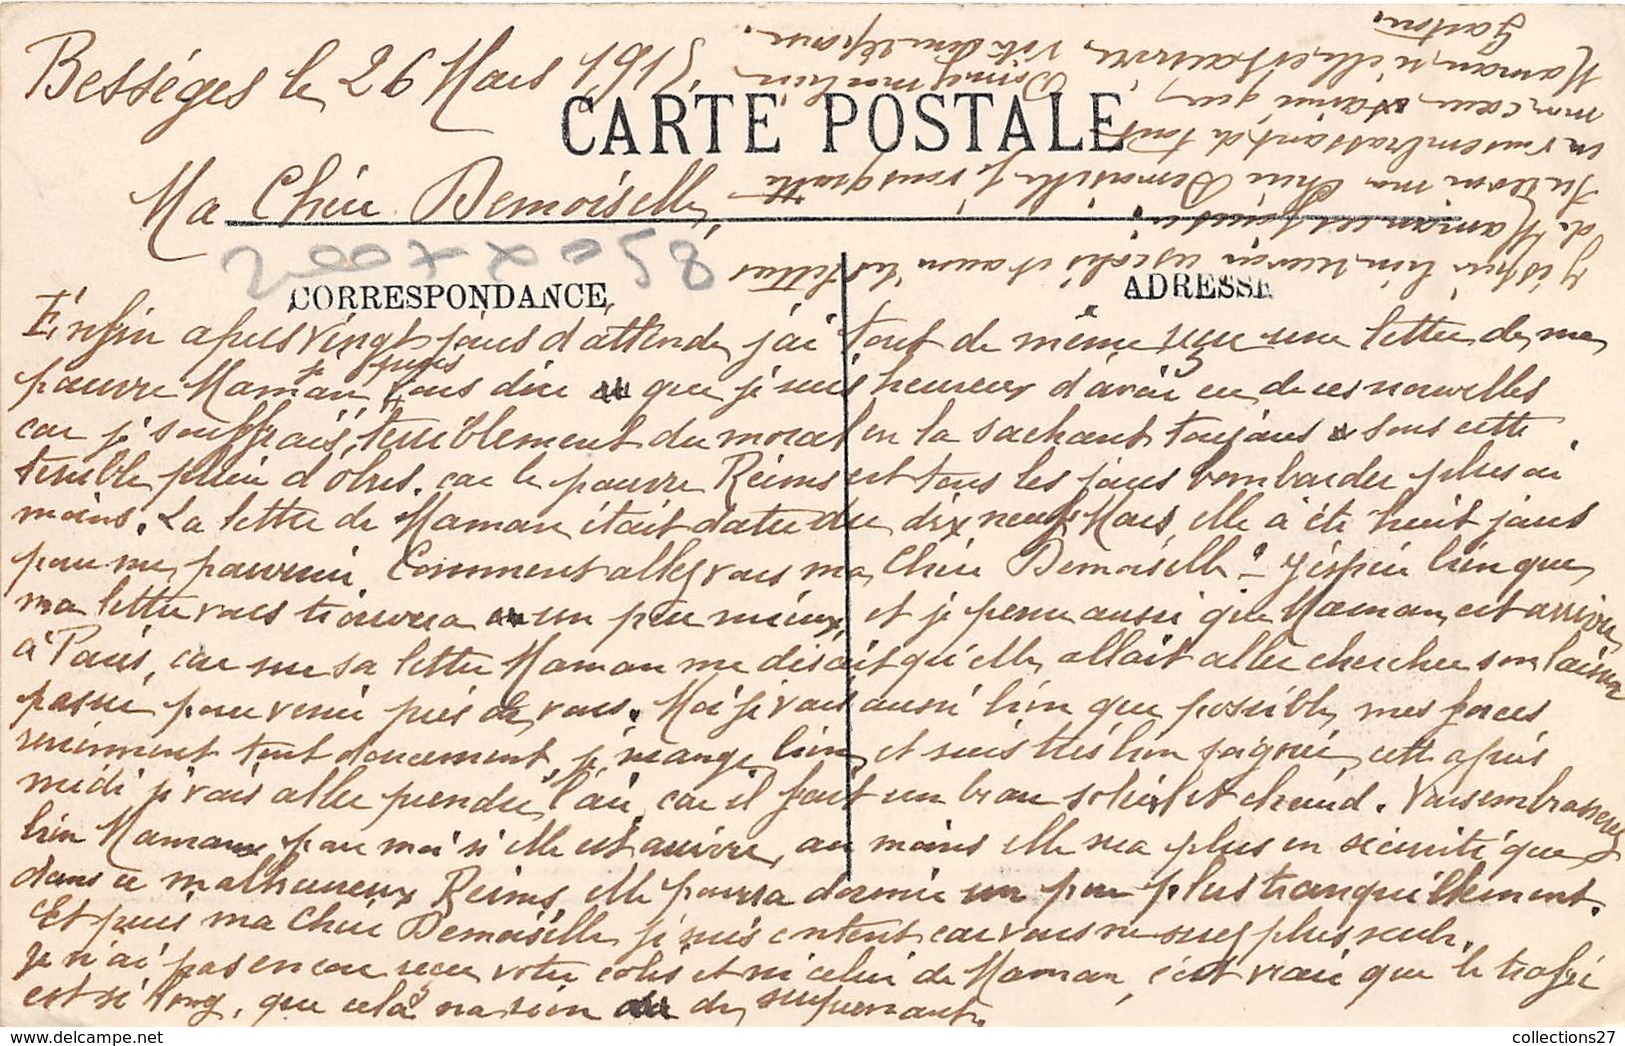 Bességes le 26 Mars 1915
CARTE POSTALE
Ma Chère Demoiselle,
20077 58
CORRESPONDANCE
ADRESSE
Enfin apres vingt jours d'attende, j'ai tout de même reçu une lettre de ma
pauvre Maman, je puis vous dire que je suis heureux d'avoir eu de ces nouvelles
car je souffrais terriblement du moral en la sachant toujours sous cette
terrible pluie d'obus. car le pauvre Reims est tous les jours bombarder plus ou
moins. La lettre de Maman était datée du dix neuf Mars, elle à été huit jours
pour me parvenir. Comment allez vous ma Chère Demoiselle? J'éspère bien que
ma lettre vous trouvera un peu mieux, et je pense aussi que Maman, est arrivée
à Paris, car sur sa lettre Maman me disait qu'elle, allait aller chercher son laisser
passer pour venir près de vous. Moi je vais aussi bien que possible, mes forces
reviennent tout doucement, je mange bien, et suis très bien soigné, cett après
midi je vais aller prendre l'air, car il fait un beau soleil et chaud. Vous embrasserez
bien Maman, pour moi si elle est arrivée, au moins elle sera plus en sécurité que
dans ce malheureux Reims, elle pourra dormir un peu plus tranquillement.
Et puis ma Chère Demoiselle, je suis content car vous ne serez plus seule.
Je n'ai pas encore reçu votre colis et ni celui de Maman, c'est vrai que le trajet
est si long, que celà n'a rien de surprenant.
J'éspère bien recevoir ces colis et aussi les lettres
de Maman
ma Chère Demoiselle, je vous quitte
en vous embrassant de tout
mon cœur, et ainsi que
Maman, si elle est arrivée,
Gaston.